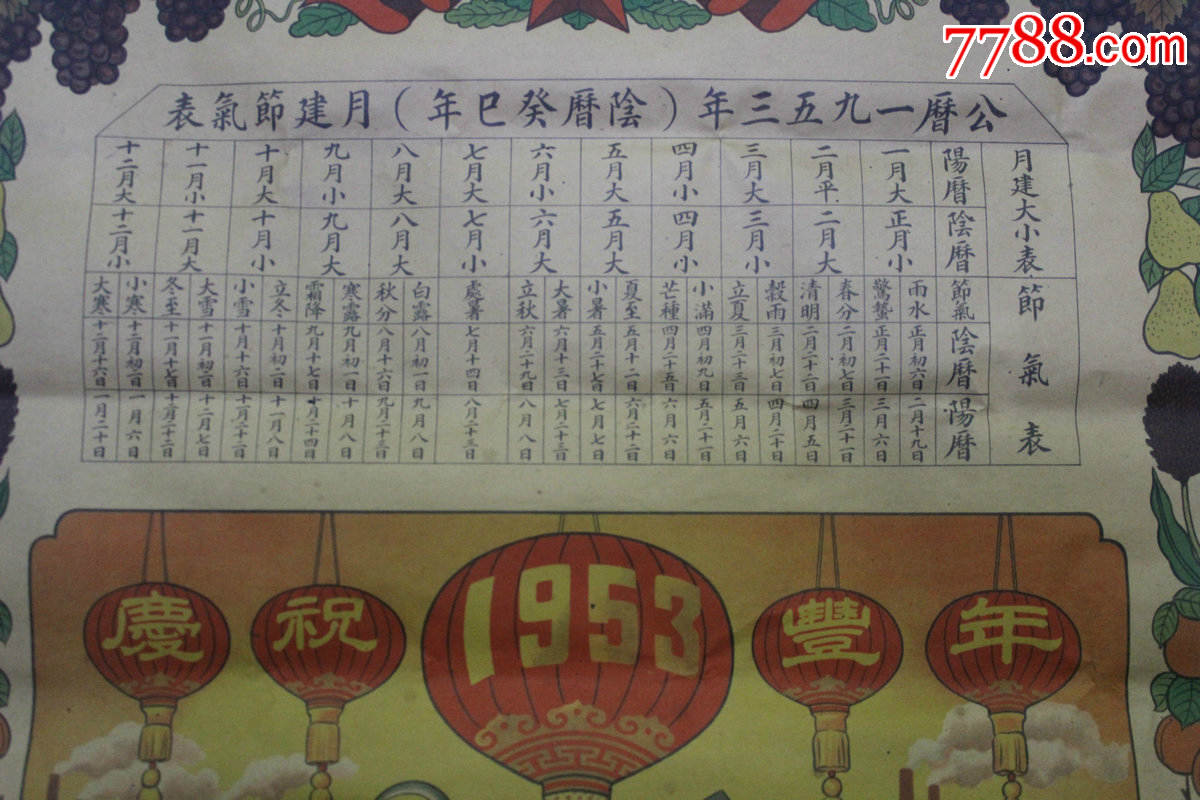 7788.com
公曆一九五三年（陰曆癸巳年）月建節氣表
月建大小表
陽曆 一月大 二月平 三月大 四月小 五月大 六月小 七月大 八月大 九月小 十月大 十一月小 十二月大
陰曆 正月小 二月大 三月小 四月小 五月大 六月大 七月小 八月大 九月大 十月小 十一月大 十二月小
節氣表
節氣 雨水 驚蟄 春分 清明 穀雨 立夏 小滿 芒種 夏至 小暑 大暑 立秋 處暑 白露 秋分 寒露 霜降 立冬 小雪 大雪 冬至 小寒 大寒
陰曆 正月初六日 正月二十一日 二月初七日 二月二十二日 三月初七日 三月二十三日 四月初九日 四月二十五日 五月十二日 五月二十七日 六月十三日 六月二十九日 七月十四日 八月初一日 八月十六日 九月初一日 九月十七日 十月初二日 十月十六日 十一月初二日 十一月十七日 十二月初二日 十二月十六日
陽曆 二月十九日 三月六日 三月二十一日 四月五日 四月二十日 五月六日 五月二十一日 六月六日 六月二十二日 七月七日 七月二十三日 八月八日 八月二十三日 九月八日 九月二十三日 十月八日 十月二十四日 十一月八日 十一月二十二日 十二月七日 十二月二十二日 一月六日 一月二十日
慶祝 1953 豐年